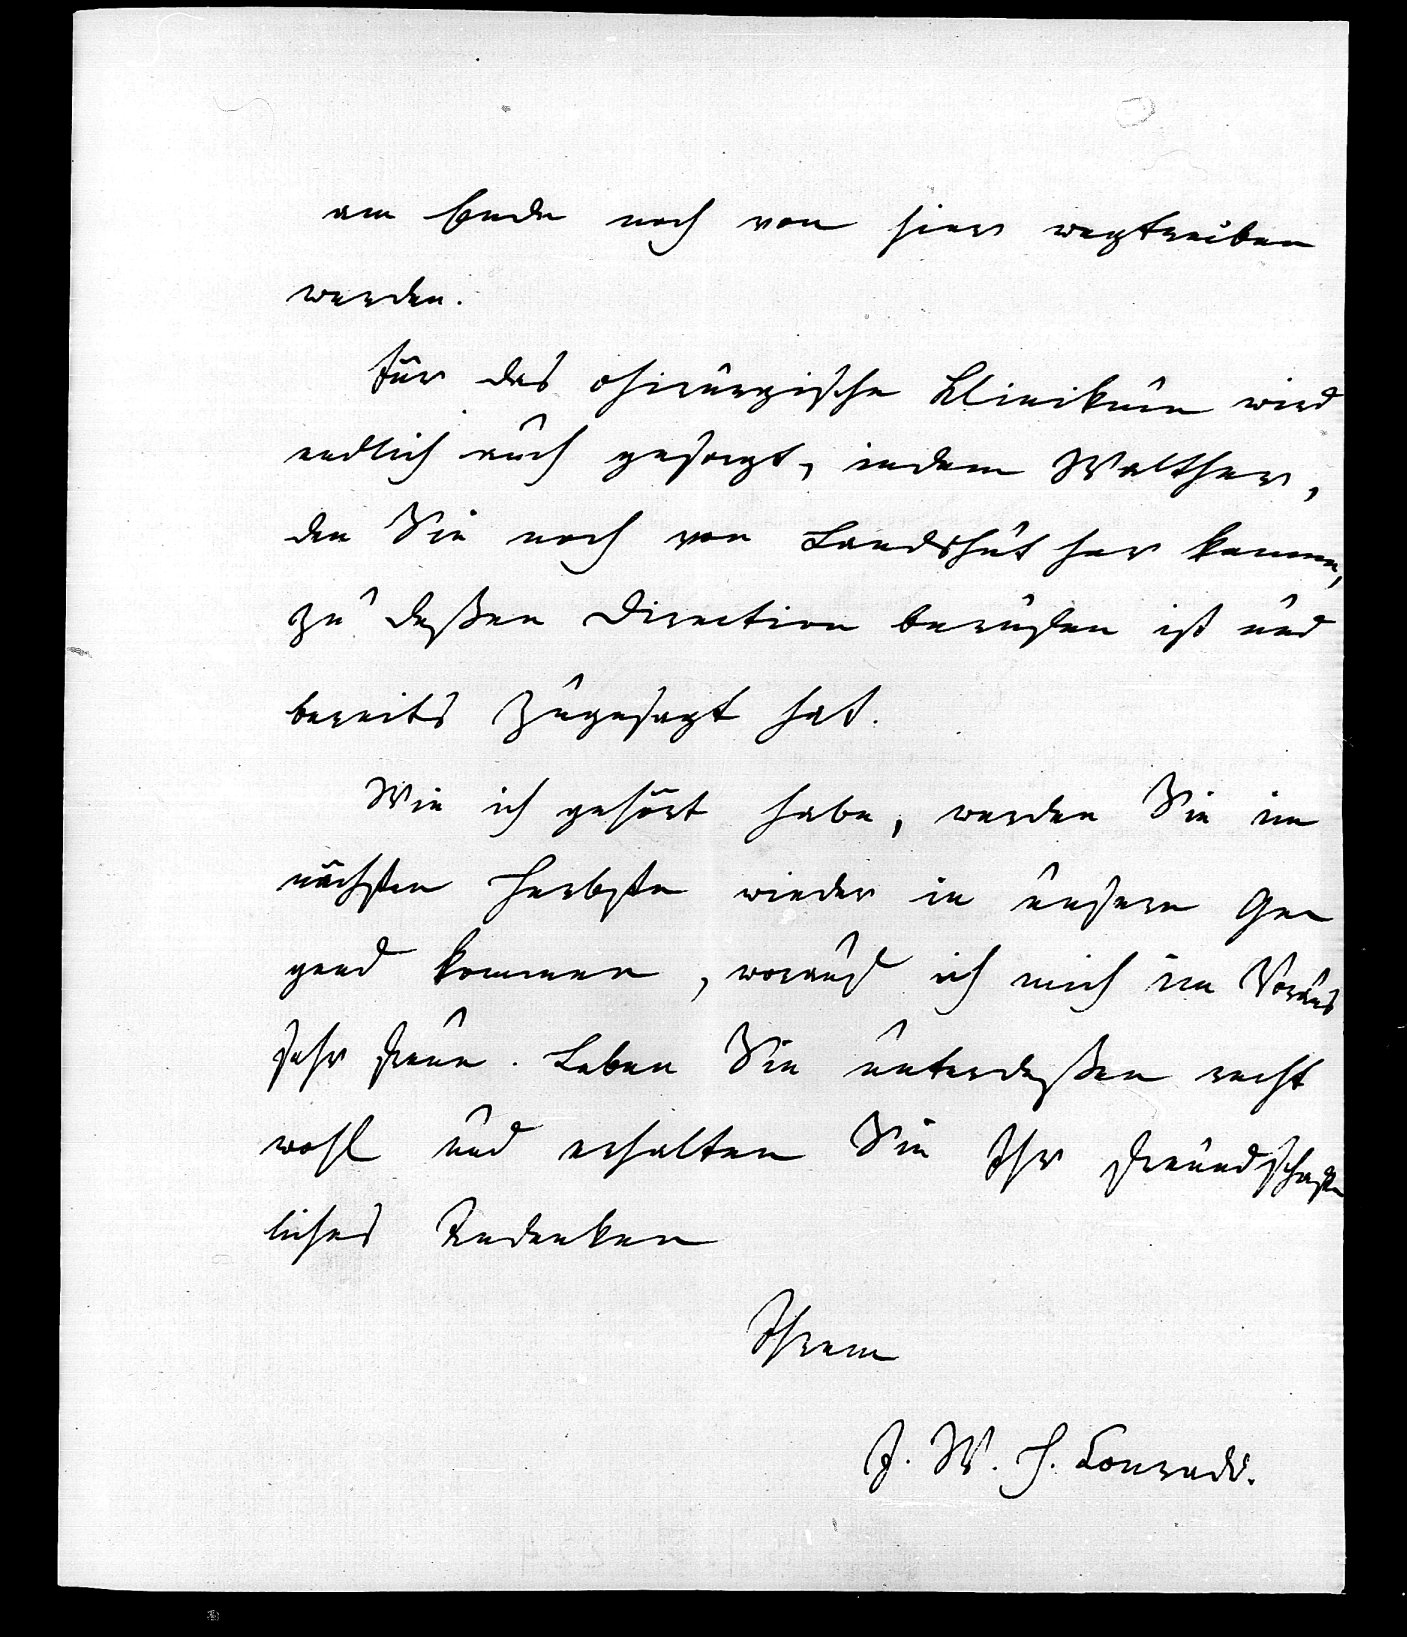 am Ende noch von hier wegtreiben
werden.
Für das chirurgische Klinikum wird
endlich auch gesorgt, indem Walther,
den Sie noch von Landshut her kennen,
zu deßen Direction berufen ist und
bereits zugesagt hat.
Wie ich gehört habe, werden Sie im
nächsten Herbste wieder in unsere Ge
gend kommen, worauf ich mich im Voraus
sehr freue. Leben Sie unterdeßen recht
wohl und erhalten Sie Ihr freundschaft
liches Andenken
Ihrem
J. W. H. Conradi.